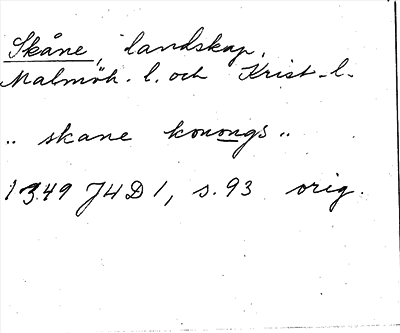 Skåne, landskap.
Malmöh. l. och Krist. l.
.. skane konongs ..
1349 J4D1, s. 93 orig.